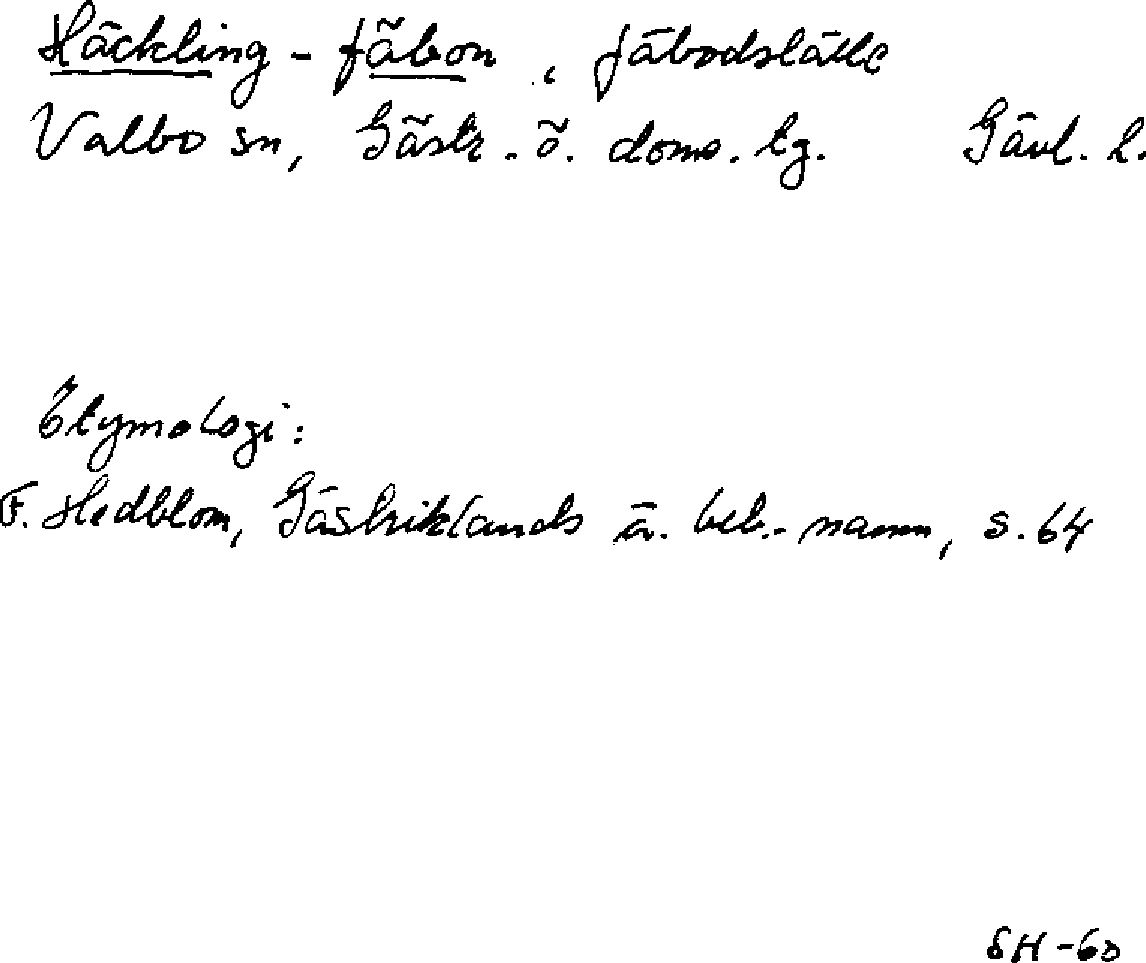 Häckling-fäbon, fäbodställe
Valbo sn, Gästr. ö. doms. tg. Gävl. l.
Etymologi:
F. Hedblom, Gästriklands ä. beb.-namn, s. 64
SH-60